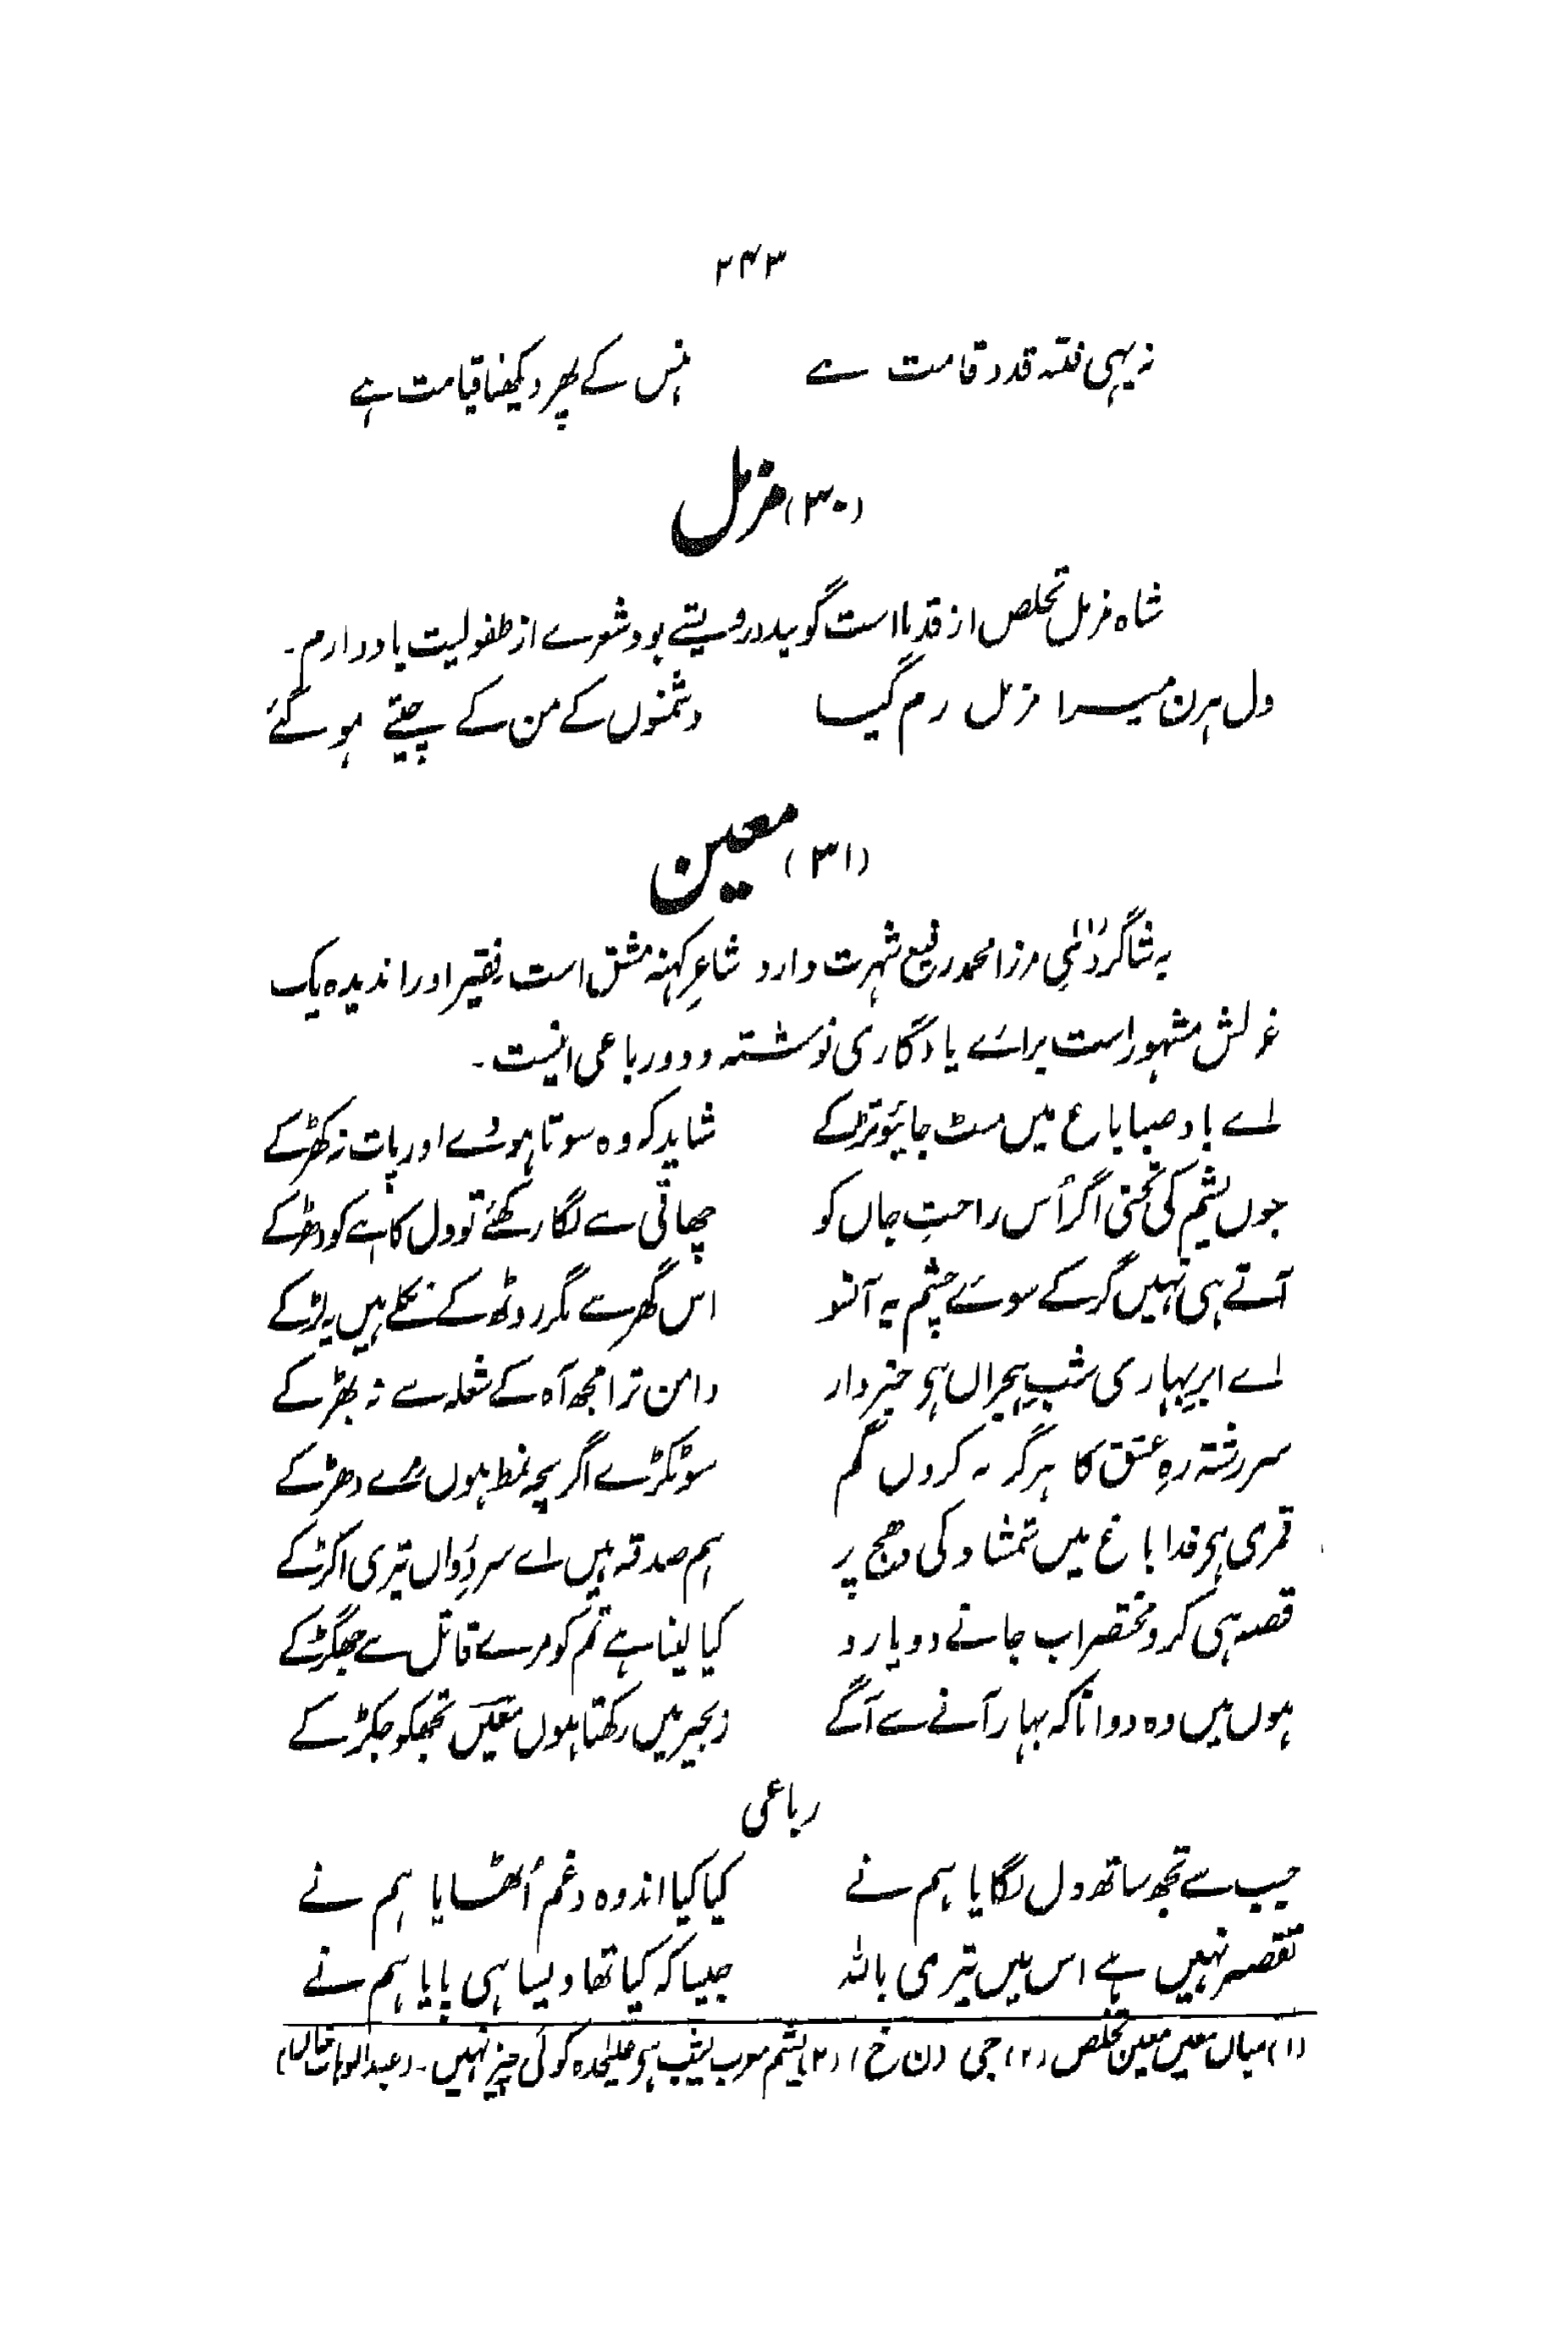 ۲۴۳
نہ یہی فتنہ قد و قامت ہے ہنس کے پھر دیکھنا قیامت ہے
(۳۰) مزمل
شاہ مزمل تخلص از قدما است گویند درویشے بود شعرے از طفولیت یاد دارم۔
دل ہرن میرا مزمل رم گیا دشمنوں کے من کے چیتے ہو گئے
(۳۱) معین
بہ شاگردئی مرزا محمد رفیع شہرت دارد شاعرِ کہنہ مشق است فقیر او را ندیدہ یک
غزلش مشہور است برائے یادگاری نوشتہ و دو رباعی اینست۔
اے باد صبا باغ میں مت جائیو تڑکے شاید کہ وہ سوتا ہوئے اور پات نہ کھڑکے
جوں یشم کی تختی اگر اُس راحتِ جاں کو چھاتی سے لگا رکھئے تو دل کاہے کو دھڑکے
آتے ہی نہیں گر کے سوئے چشم یہ آنسو اس گھر سے مگر روٹھ کے نکلے ہیں یہ لڑکے
اے ابرِ بہاری شبِ ہجراں ہے خبردار دامن ترا مجھ آہ کے شعلہ سے نہ بھڑکے
سررشتہ رہِ عشق کا ہرگز نہ کروں گم سو ٹکڑے اگرچہ نمط ہوں مرے دھڑ کے
قمری ہے فدا باغ میں شمشاد کی دھج پر ہم صدقہ ہیں اے سروِ رواں تیری اکڑ کے
قصہ ہی کرو مختصر اب جانے دو یارو کیا لینا ہے تم کو مرے قاتل سے جھگڑ کے
ہوں میں وہ دوانا کہ بہار آنے سے آگے زنجیر میں رکھتا ہوں معیں تجھکو جکڑ کے
رباعی
جب سے تجھ ساتھ دل لگایا ہم نے کیا کیا اندوہ و غم اُٹھایا ہم نے
تقصیر نہیں ہے اس میں تیری باللہ جیسا کہ کیا تھا ویسا ہی پایا ہم نے
(۱) میاں معین معین تخلص (۲) جی (ن خ) (۳) یشم معرب یشب ہے علیٰحدہ کوئی چیز نہیں۔ (عبدالوہاب